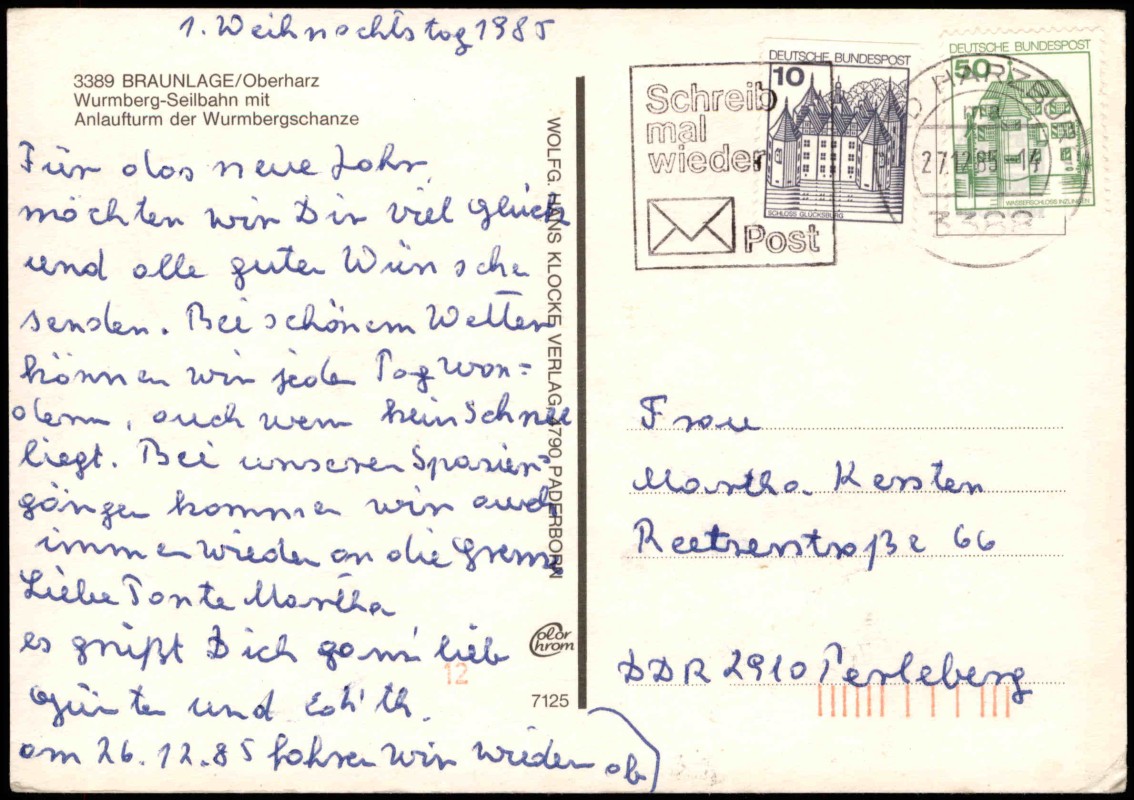 1. Weihnachtstag 1985
3389 BRAUNLAGE/Oberharz
Wurmberg-Seilbahn mit
Anlaufturm der Wurmbergschanze
Für das neue Jahr
möchten wir Dir viel Glück
und alle guten Wünsche
senden. Bei schönem Wetter
können wir jeden Tag wan=
dern, auch wenn kein Schnee
liegt. Bei unseren Spazier=
gängen kommen wir auch
immer wieder an die Grenze
Liebe Tante Martha
es grüßt Dich ganz lieb
Günter und Edith.
am 26.12.85 fahren wir wieder ab
WOLFG. HANS KLOCKE VERLAG, 4790 PADERBORN
Color
Chrom
7125
12
Schreib
mal
wieder
Post
DEUTSCHE BUNDESPOST
10
SCHLOSS GLÜCKSBURG
DEUTSCHE BUNDESPOST
50
WASSERSCHLOSS INZLINGEN
BAD HARZBURG
27.12.85-14
3388
Frau
Martha Kersten
Reetzerstraße 66
DDR 2910 Perleberg